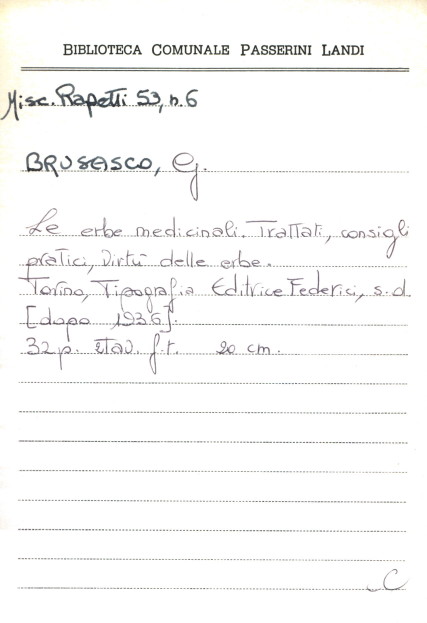 BIBLIOTECA COMUNALE PASSERINI LANDI
Misc. Rapetti 53, n. 6
BRUSASCO, G.
Le erbe medicinali. Trattati, consigli
pratici, virtù delle erbe.
Torino, Tipografia Editrice Federici, s.d.
[dopo 1936].
32 p. 2 tav. f.t. 20 cm.
C